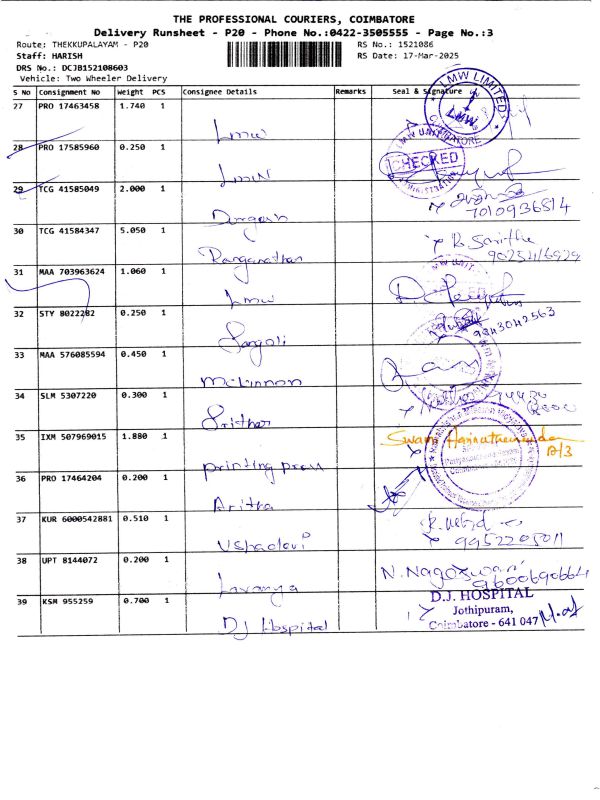 THE PROFESSIONAL COURIERS, COIMBATORE
Delivery Runsheet - P20 - Phone No.:0422-3505555 - Page No.:3
Route: THEKKUPALAYAM - P20 RS No.: 1521086
Staff: HARISH RS Date: 17-Mar-2025
DRS No.: DCJB152108603
Vehicle: Two Wheeler Delivery
S No Consignment No Weight PCS Consignee Details Remarks Seal & Signature
27 PRO 17463458 1.740 1 Lmw
LMW LIMITED
LMW
COIMBATORE
28 PRO 17585960 0.250 1 Lmw
LMW UNIT
CHECKED
29 TCG 41585049 2.000 1
7010936814
30 TCG 41584347 5.050 1 Ranganathan
31 MAA 703963624 1.060 1 Lmw
LMW UNIT
32 STY 8022282 0.250 1
9843042563
33 MAA 576085594 0.450 1 Mckinnon
34 SLM 5307220 0.300 1 Sridhar
35 IXM 507969015 1.880 1 printing press
Swami
36 PRO 17464204 0.200 1
37 KUR 6000542881 0.510 1 Ushadevi
9952205011
38 UPT 8144072 0.200 1 Lavanya
9600690664
39 KSM 955259 0.700 1 DJ Hospital
D.J. HOSPITAL
Jothipuram,
Coimbatore - 641 047